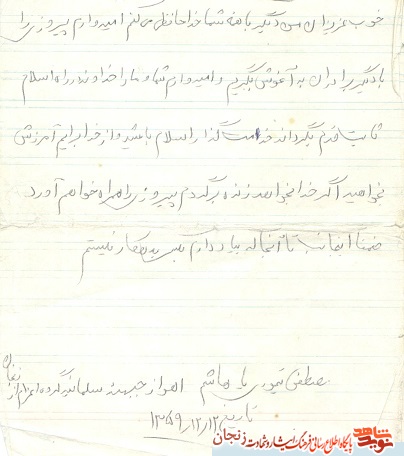 خوب عزیزان من دیگر با همه شما خداحافظی می کنم امیدوارم پیروزی را
با دیگر برادران به آغوش بگیریم و امیدوارم شما و ما را خداوند در راه اسلام
ثابت قدم بگرداند خدمت گذار اسلام باشید و از خدا برایم آمرزش
بخواهید اگر خدا بخواهد زنده برگردم پیروزی را همراه خواهم آورد
ضمنا اینجانب تا آنجا که بیاد دارم بکسی بدهکار نیستم
مصطفی تیموری یا هاشم اهواز جبهه سلمانیه گروه اعزام از زنجان
تاریخ ۱۳۵۹٫۱۲٫۱۲
نوید شاهد پایگاه اطلاع رسانی فرهنگ ایثار و شهادت زنجان